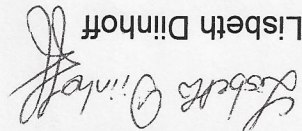 Lisbeth Diinhoff
Lisbeth Diinhoff